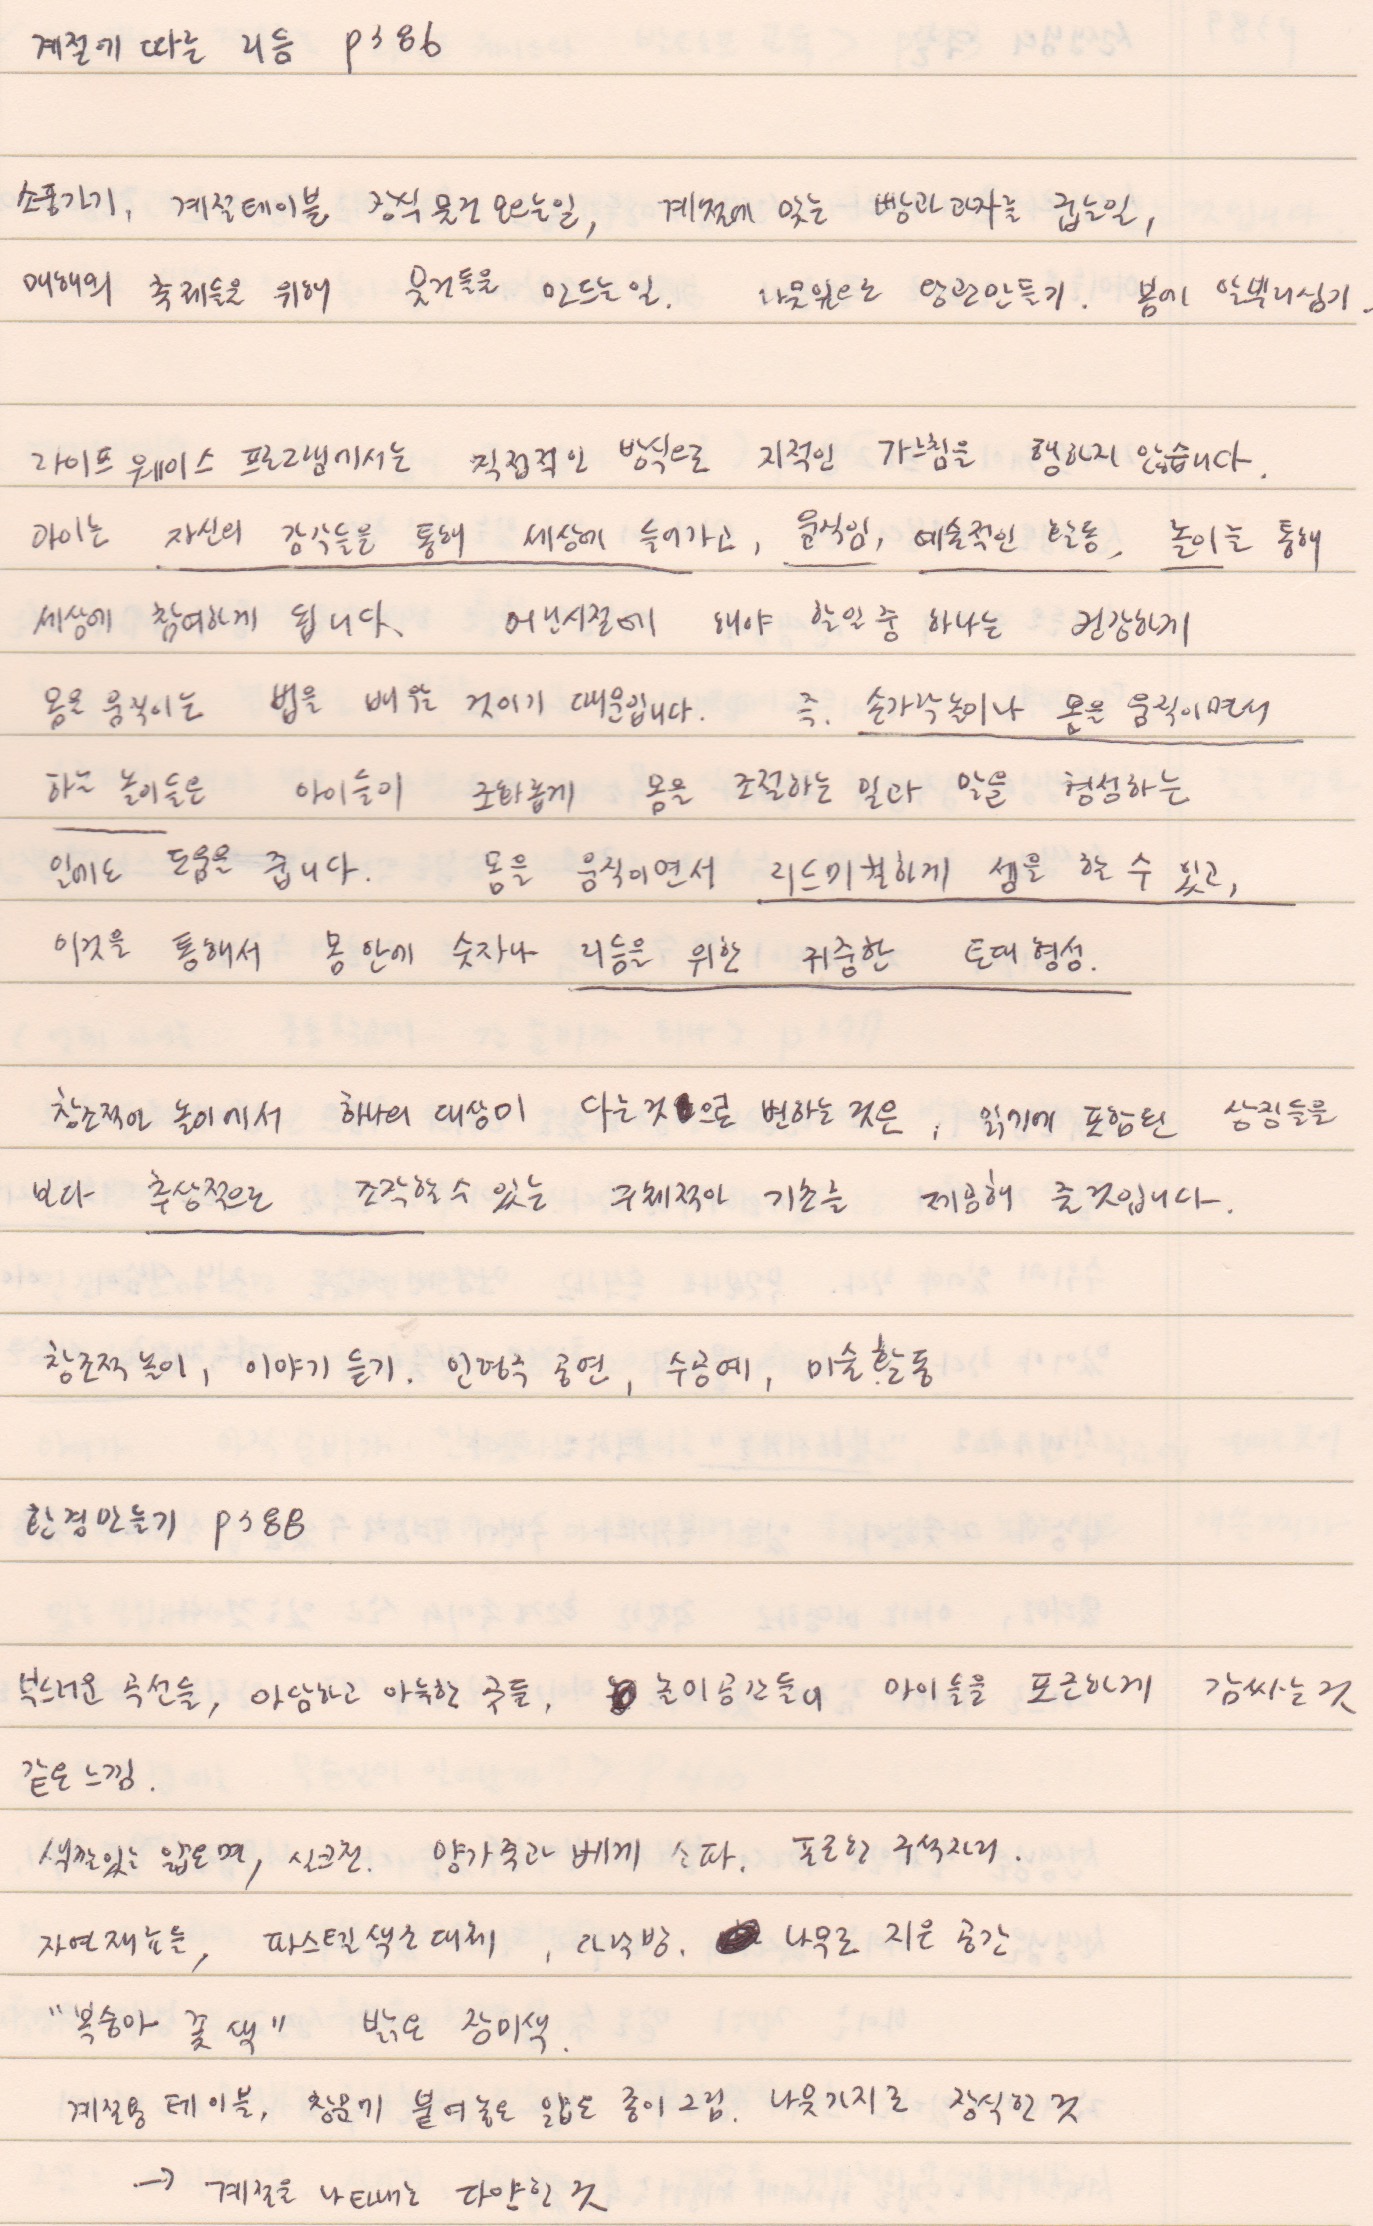 계절에 따른 리듬 p386
소풍가기, 계절테이블 장식 물건 모으는일, 계절에 맞는 빵과 과자를 굽는일,
매해의 축제들을 위해 물건들을 만드는일. 나뭇잎으로 왕관만들기. 봄에 알뿌리심기.
라이프웨이스 프로그램에서는 직접적인 방식으로 지적인 가르침을 행하지 않습니다.
아이는 자신의 감각들을 통해 세상에 들어가고, 움직임, 예술적인 활동, 놀이를 통해
세상에 참여하게 됩니다. 어린시절에 해야 할일 중 하나는 건강하게
몸을 움직이는 법을 배우는 것이기 때문입니다. 즉. 손가락놀이나 몸을 움직이면서
하는 놀이들은 아이들이 조화롭게 몸을 조절하는 일과 말을 형성하는
일에도 도움을 줍니다. 몸을 움직이면서 리드미컬하게 셈을 할 수 있고,
이것을 통해서 몸 안에 숫자나 리듬을 위한 귀중한 토대 형성.
창조적인 놀이에서 하나의 대상이 다른것으로 변하는 것은, 읽기에 포함된 상징들을
보다 추상적으로 조작할 수 있는 구체적인 기초를 제공해 줄것입니다.
창조적 놀이, 이야기 듣기. 인형극 공연, 수공예, 미술활동
환경만들기 p388
부드러운 곡선들, 아담하고 아늑한 곳들, 놀이공간들이 아이들을 포근하게 감싸는것
같은 느낌.
색깔있는 얇은 면, 실크천. 양가죽과 베게 소파. 포근한 구석자리.
자연재료들, 파스텔 색조 대체, 다락방. 나무로 지은 공간
"복숭아 꽃 색" 밝은 장미색.
계절용 테이블, 창문에 붙여놓은 얇은 종이그림. 나뭇가지로 장식한 것
→ 계절을 나타내는 다양한 것